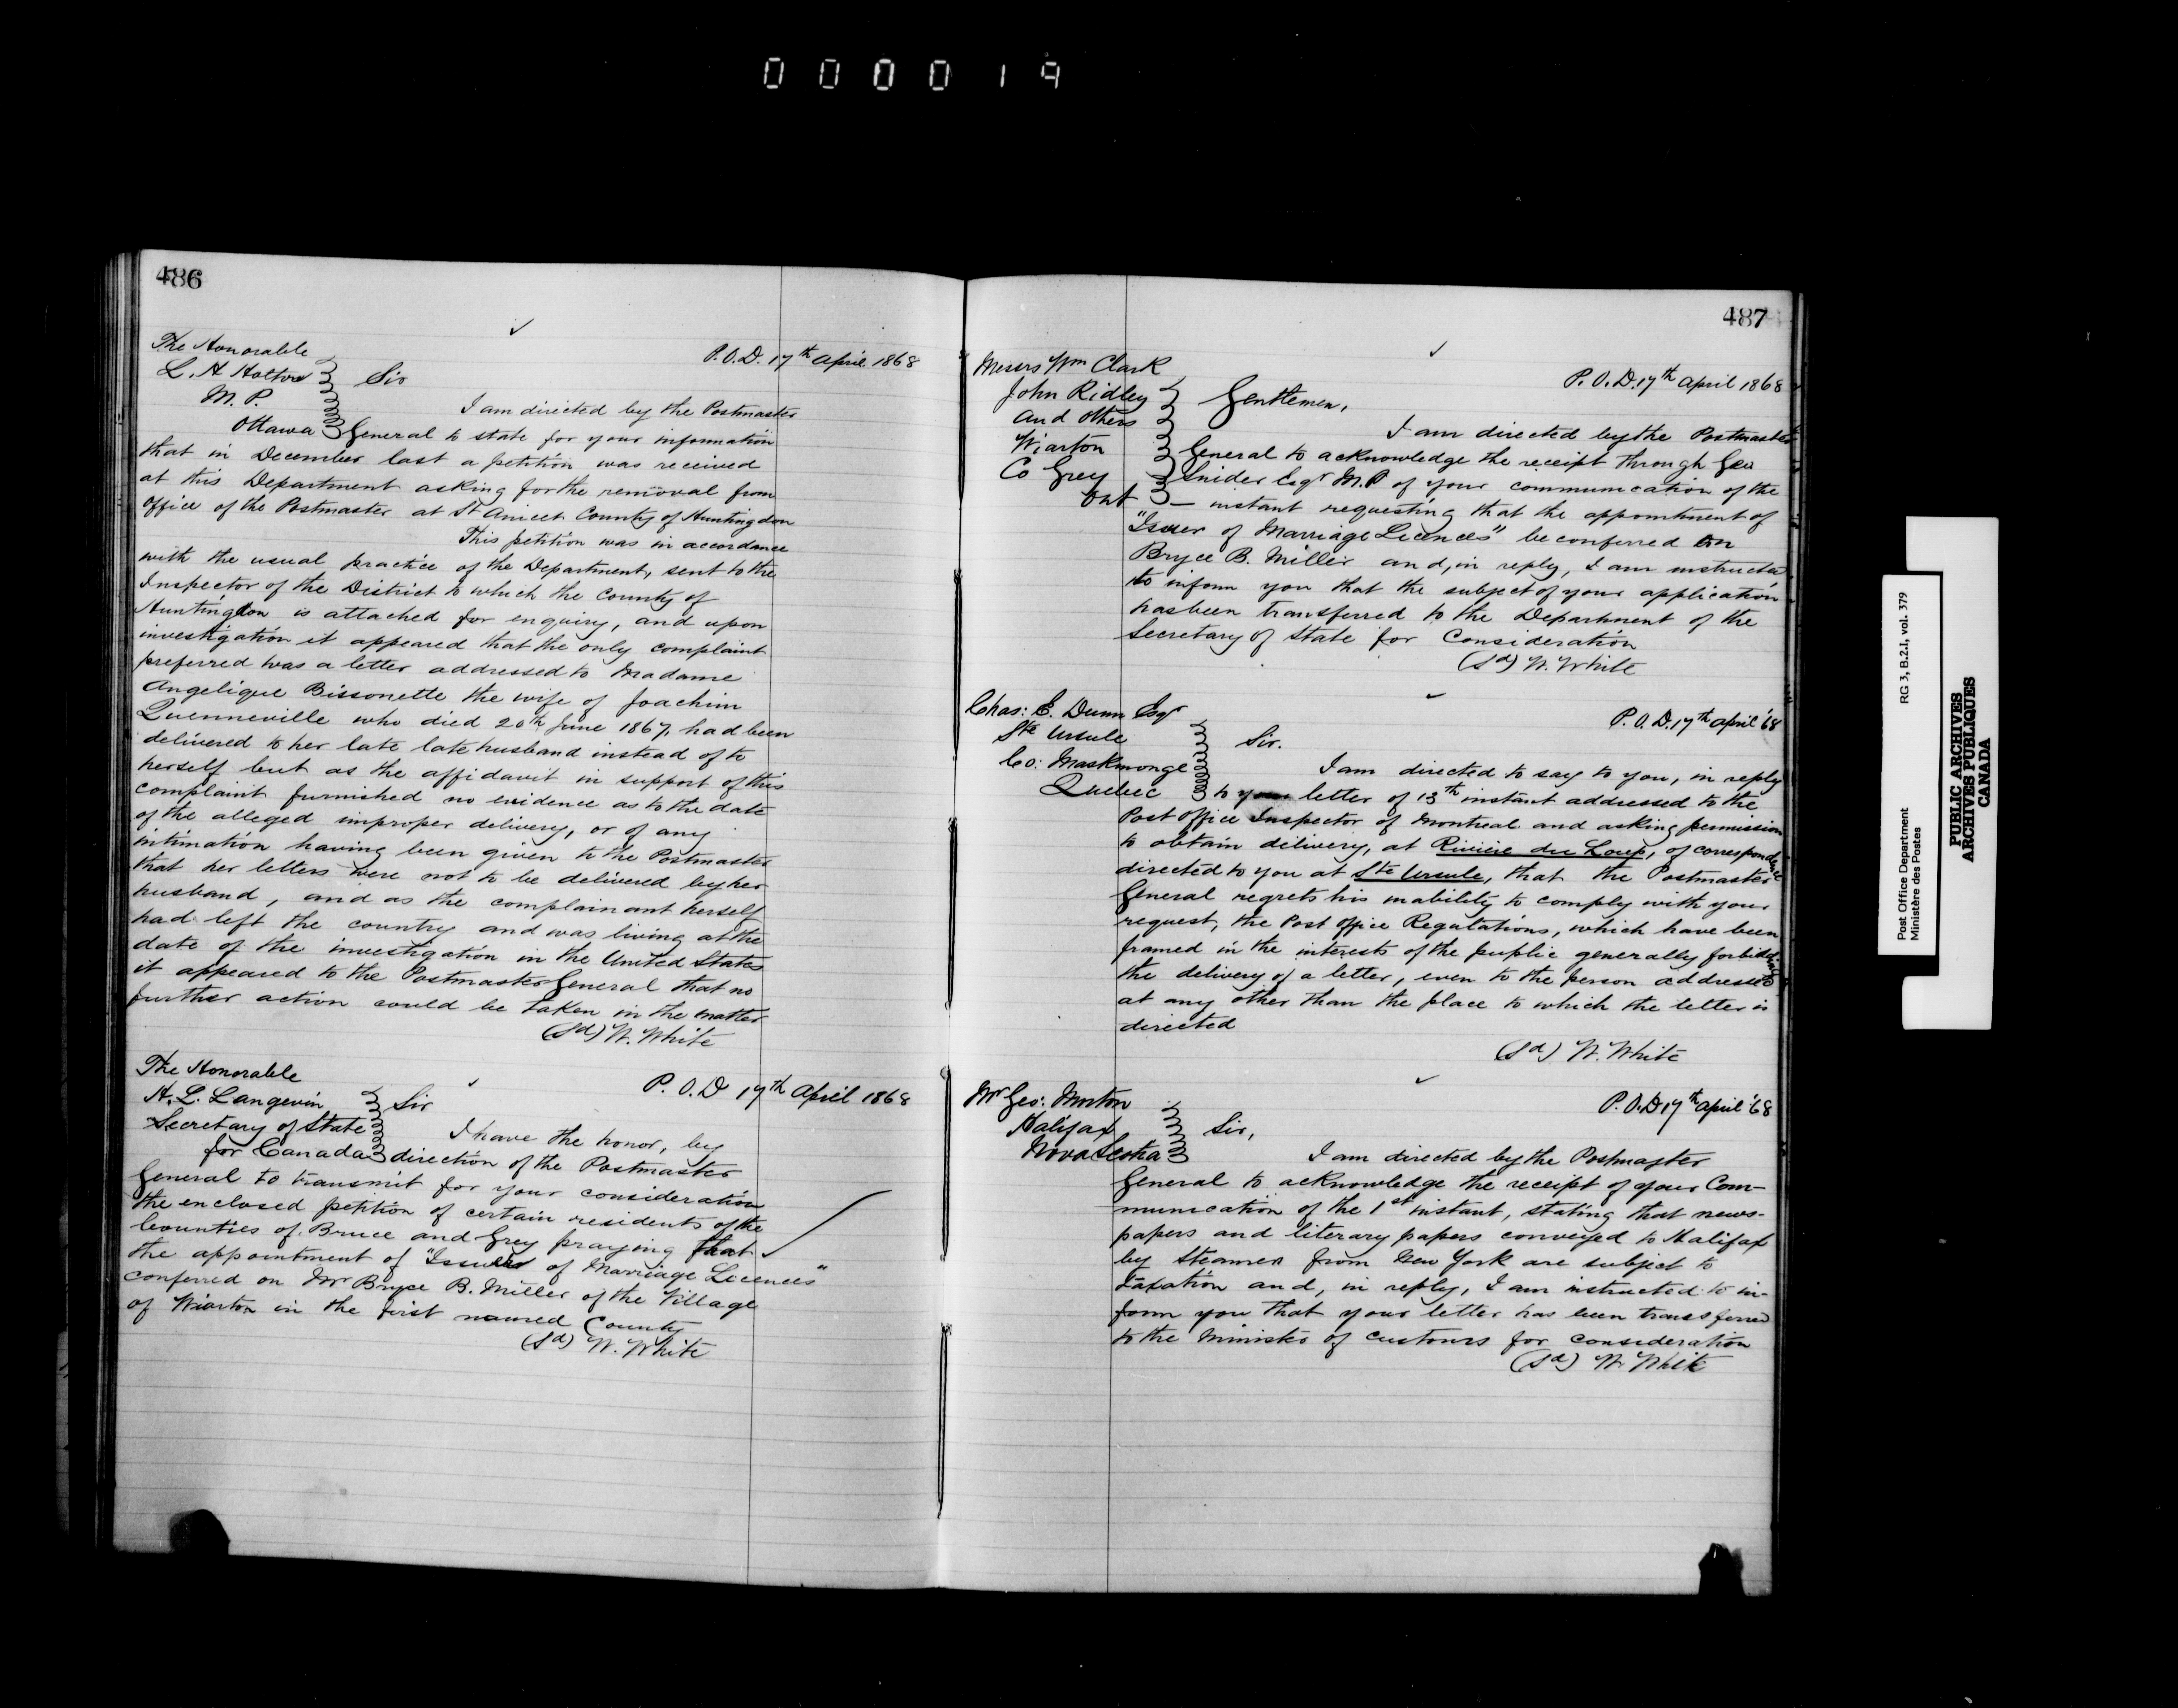 000019
486
The Honorable
L. H Holton
M. P.
Ottawa
P.O.D. 17th April 1868
Sir
I am directed by the Postmaster
General to state for your information
that in December last a petition was received
at this Department asking for the removal from
office of the Postmaster at St Anicet County of Huntingdon
This petition was in accordance
with the usual practice of the Department, sent to the
Inspector of the District to which the County of
Huntingdon is attached for enquiry, and upon
investigation it appeared that the only complaint
preferred was a letter addressed to Madame
Angelique Bissonette the wife of Joachim
Quenneville who died 20th June 1867, had been
delivered to her late late husband instead of to
herself but as the affidavit in support of this
complaint furnished no evidence as to the date
of the alleged improper delivery, or of any
intimation having been given to the Postmaster
that her letters were not to be delivered by her
husband, and as the complainant herself
had left the country and was living at the
date of the investigation in the United States
it appeared to the Postmaster General that no
further action could be taken in the matter
(Sd) W. White
The Honorable
H. L. Langevin
Secretary of State
for Canada
P. O. D 17th April 1868
Sir
I have the honor, by
direction of the Postmaster
General to transmit for your consideration
the enclosed petition of certain residents of the
Counties of Bruce and Grey praying that
the appointment of "Issuer of Marriage Licences"
conferred on Mr Bryce B. Miller of the Village
of Wiarton in the first named County
(Sd) W. White
487
Messrs Wm Clark
John Ridley
and others
Wiarton
Co Grey
Ont
P. O. D. 17th April 1868
Gentlemen,
I am directed by the Postmaster
General to acknowledge the receipt through Geo
Snider Esqr M.P of your communication of the
— instant requesting that the appointment of
"Issuer of Marriage Licences" be conferred on
Bryce B. Miller and, in reply, I am instructed
to inform you that the subject of your application
has been transferred to the Department of the
Secretary of State for Consideration
(Sd) W. White
Chas: E. Dunn Esqr
Ste Ursule
Co: Maskinonge
Quebec
P. O. D. 17th April '68
Sir.
I am directed to say to you, in reply
to your letter of 13th instant addressed to the
Post Office Inspector of Montreal and asking permission
to obtain delivery, at Riviere du Loup, of correspondence
directed to you at Ste Ursule, that the Postmaster
General regrets his inability to comply with your
request, the Post Office Regulations, which have been
framed in the interests of the public generally forbidding
the delivery of a letter, even to the person addressed
at any other than the place to which the letter is
directed
(Sd) W. White
Mr Geo: Morton
Halifax
Nova Scotia
P.O.D 17th April '68
Sir,
I am directed by the Postmaster
General to acknowledge the receipt of your Com-
munication of the 1st instant, stating that news-
papers and literary papers conveyed to Halifax
by Steamer from New York are subject to
Taxation and, in reply, I am instructed to in-
form you that your letter has been transferred
to the Minister of Customs for consideration
(Sd) W. White
Post Office Department
Ministère des Postes
RG 3, B.2.I, vol. 379
PUBLIC ARCHIVES
ARCHIVES PUBLIQUES
CANADA